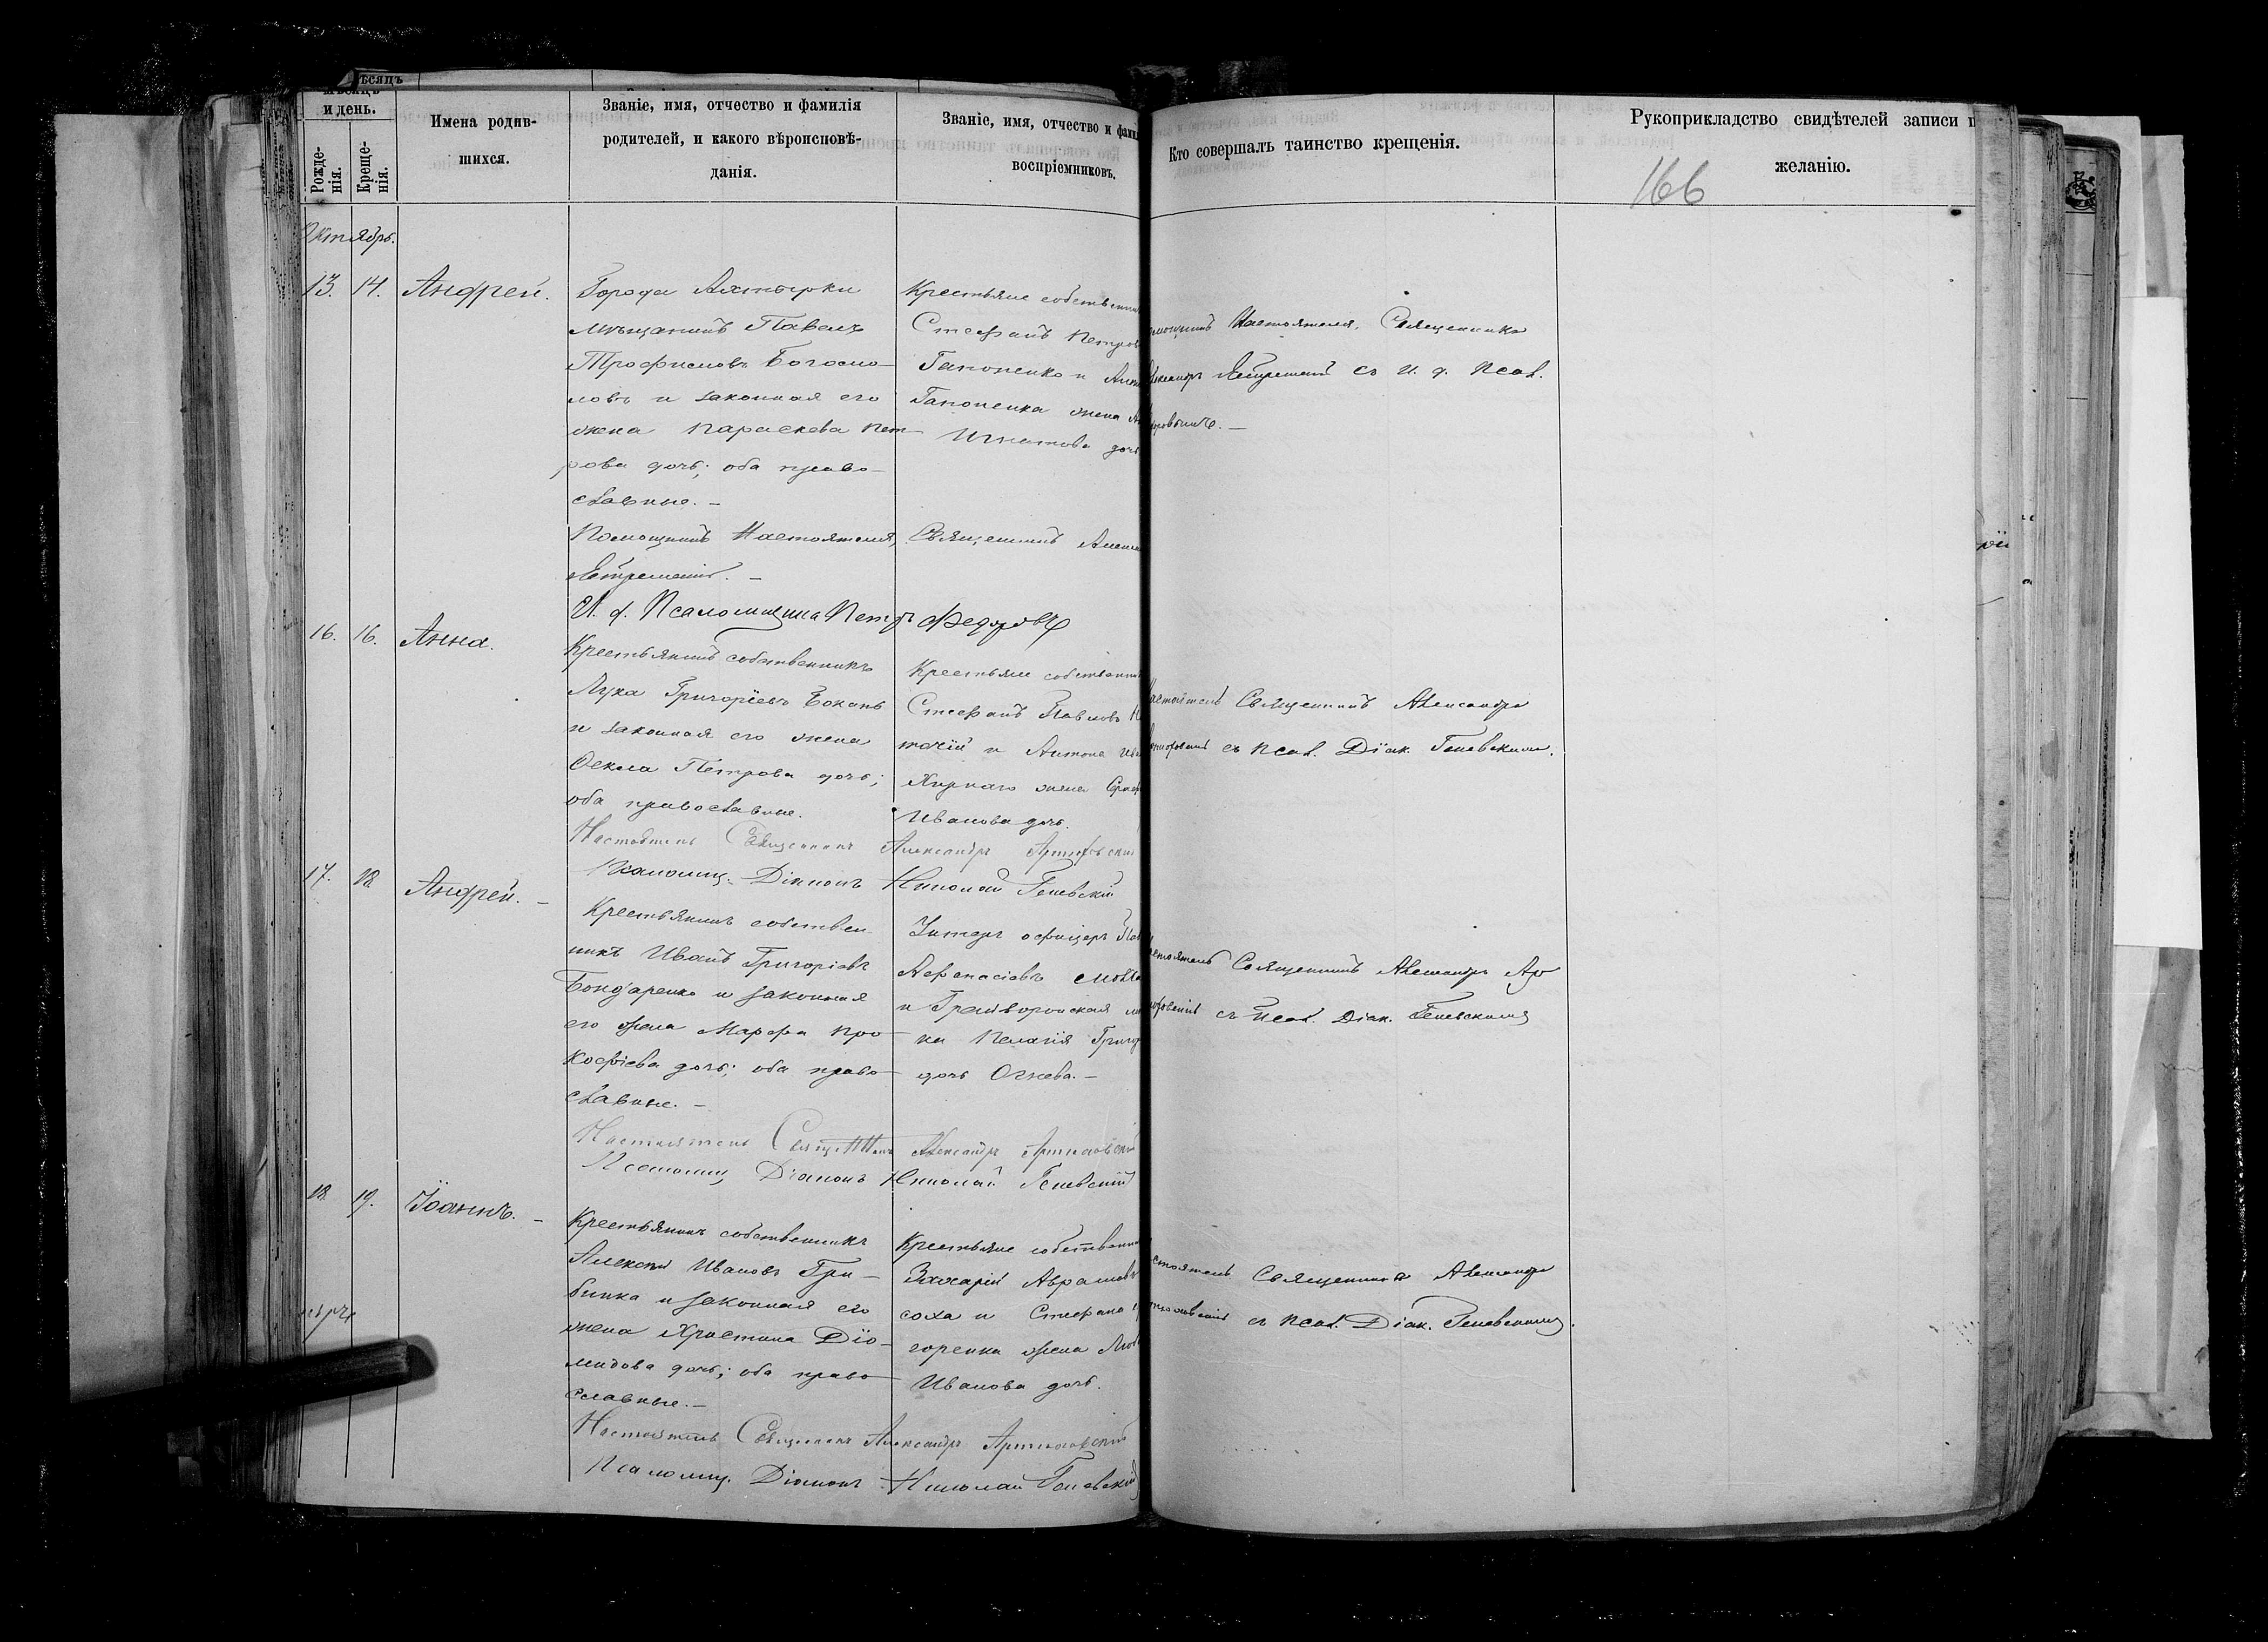 Мѣсяцъ
и день.
Рожде-
нія.
Креще-
нія.
Имена родив-
шихся.
Званіе, имя, отчество и фамилія
родителей, и какого вѣроисповѣ-
данія.
Званіе, имя, отчество и фами
воспріемниковъ.
Кто совершалъ таинство крещенія.
Рукоприкладство свидѣтелей записи п
желанію.
166
Октябрь.
13. 14. Андрей.
Города Ахтырки
мѣщанинъ Павелъ
Трофимовъ Богомо-
ловъ и законная его
жена Параскева Пет-
рова дочь; оба право-
славные. —
Крестьяне собственни
Стефанъ Петров
Гапоненко и
Гапоненка жена
Игнатова дочь
мощникъ Настоятеля, Священникъ
лександръ Ястремскій съ И. ф. Псал.
Помощникъ Настоятеля, Священникъ
Ястремскій. —
И. ф. Псаломщика Петръ Федоровъ
16. 16. Анна.
Крестьянинъ собственникъ
Лука Григоріевъ Боканъ
и законная его жена
Ѳекла Петрова дочь;
оба православные.
Крестьяне собственни
Стефанъ Павловъ
и Антона Ива
жена
Иванова дочь.
астоятель Священникъ Александръ
съ Псал. Діак. Геневскимъ.
Настоятель Священникъ Александръ Артюховскій
Псаломщ. Діаконъ Николай Геневскій
17. 18. Андрей. —
Крестьянинъ собствен-
никъ Иванъ Григоріевъ
Бондаренко и законная
его жена Марфа Про-
кофіева дочь; оба право-
славные. —
Унтеръ офицеръ
Афанасіевъ
и Грайворонская
ка Пелагія Григо
дочь Огнева. —
стоятель Священникъ Александръ Ар
съ Псал. Діак. Геневскимъ
Настоятель Священникъ Александръ Артюховскій
Псаломщ. Діаконъ Николай Геневскій
18. 19. Іоаннъ. —
Крестьянинъ собственникъ
Алексѣй Ивановъ Гри-
бинка и законная его
жена Христина Діо-
мидова дочь; оба право-
славные. —
Крестьяне собственни
Захарій Аврамовъ
соха и Стефана
горенка жена
Иванова дочь.
стоятель Священникъ Александръ
съ Псал. Діак. Геневскимъ.
Настоятель Священникъ Александръ Артюховскій
Псаломщ. Діаконъ Николай Геневскій